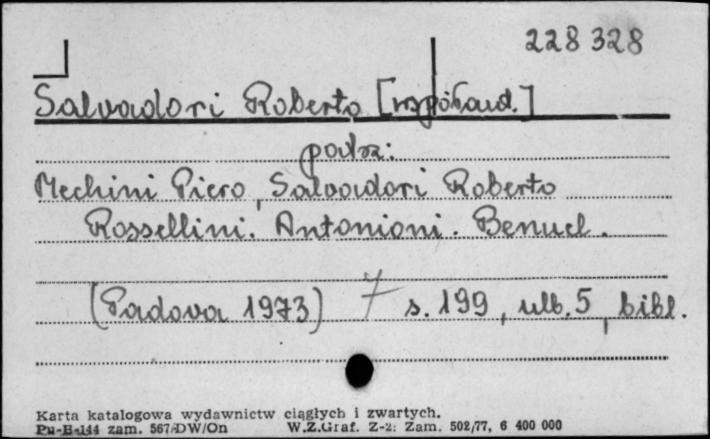 228 328
Salvadori Roberto [współaut.]
patrz:
Mechini Piero, Salvadori Roberto
Rossellini. Antonioni. Benuel.
(Padova 1973) 7 s. 199, ulb. 5, bibl.
Karta katalogowa wydawnictw ciągłych i zwartych.
Pu-B-144 zam. 567/DW/On W.Z.Graf. Z-2: Zam. 502/77, 6 400 000